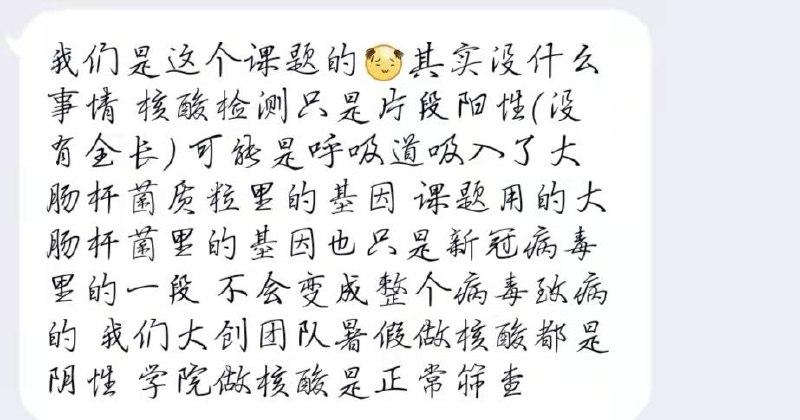 我们是这个课题的其实没什么
事情 核酸检测只是片段阳性(没
有全长)可能是呼吸道吸入了大
肠杆菌质粒里的基因 课题用的大
肠杆菌里的基因也只是新冠病毒
里的一段 不会变成整个病毒致病
的 我们大创团队暑假做核酸都是
阴性 学院做核酸是正常筛查